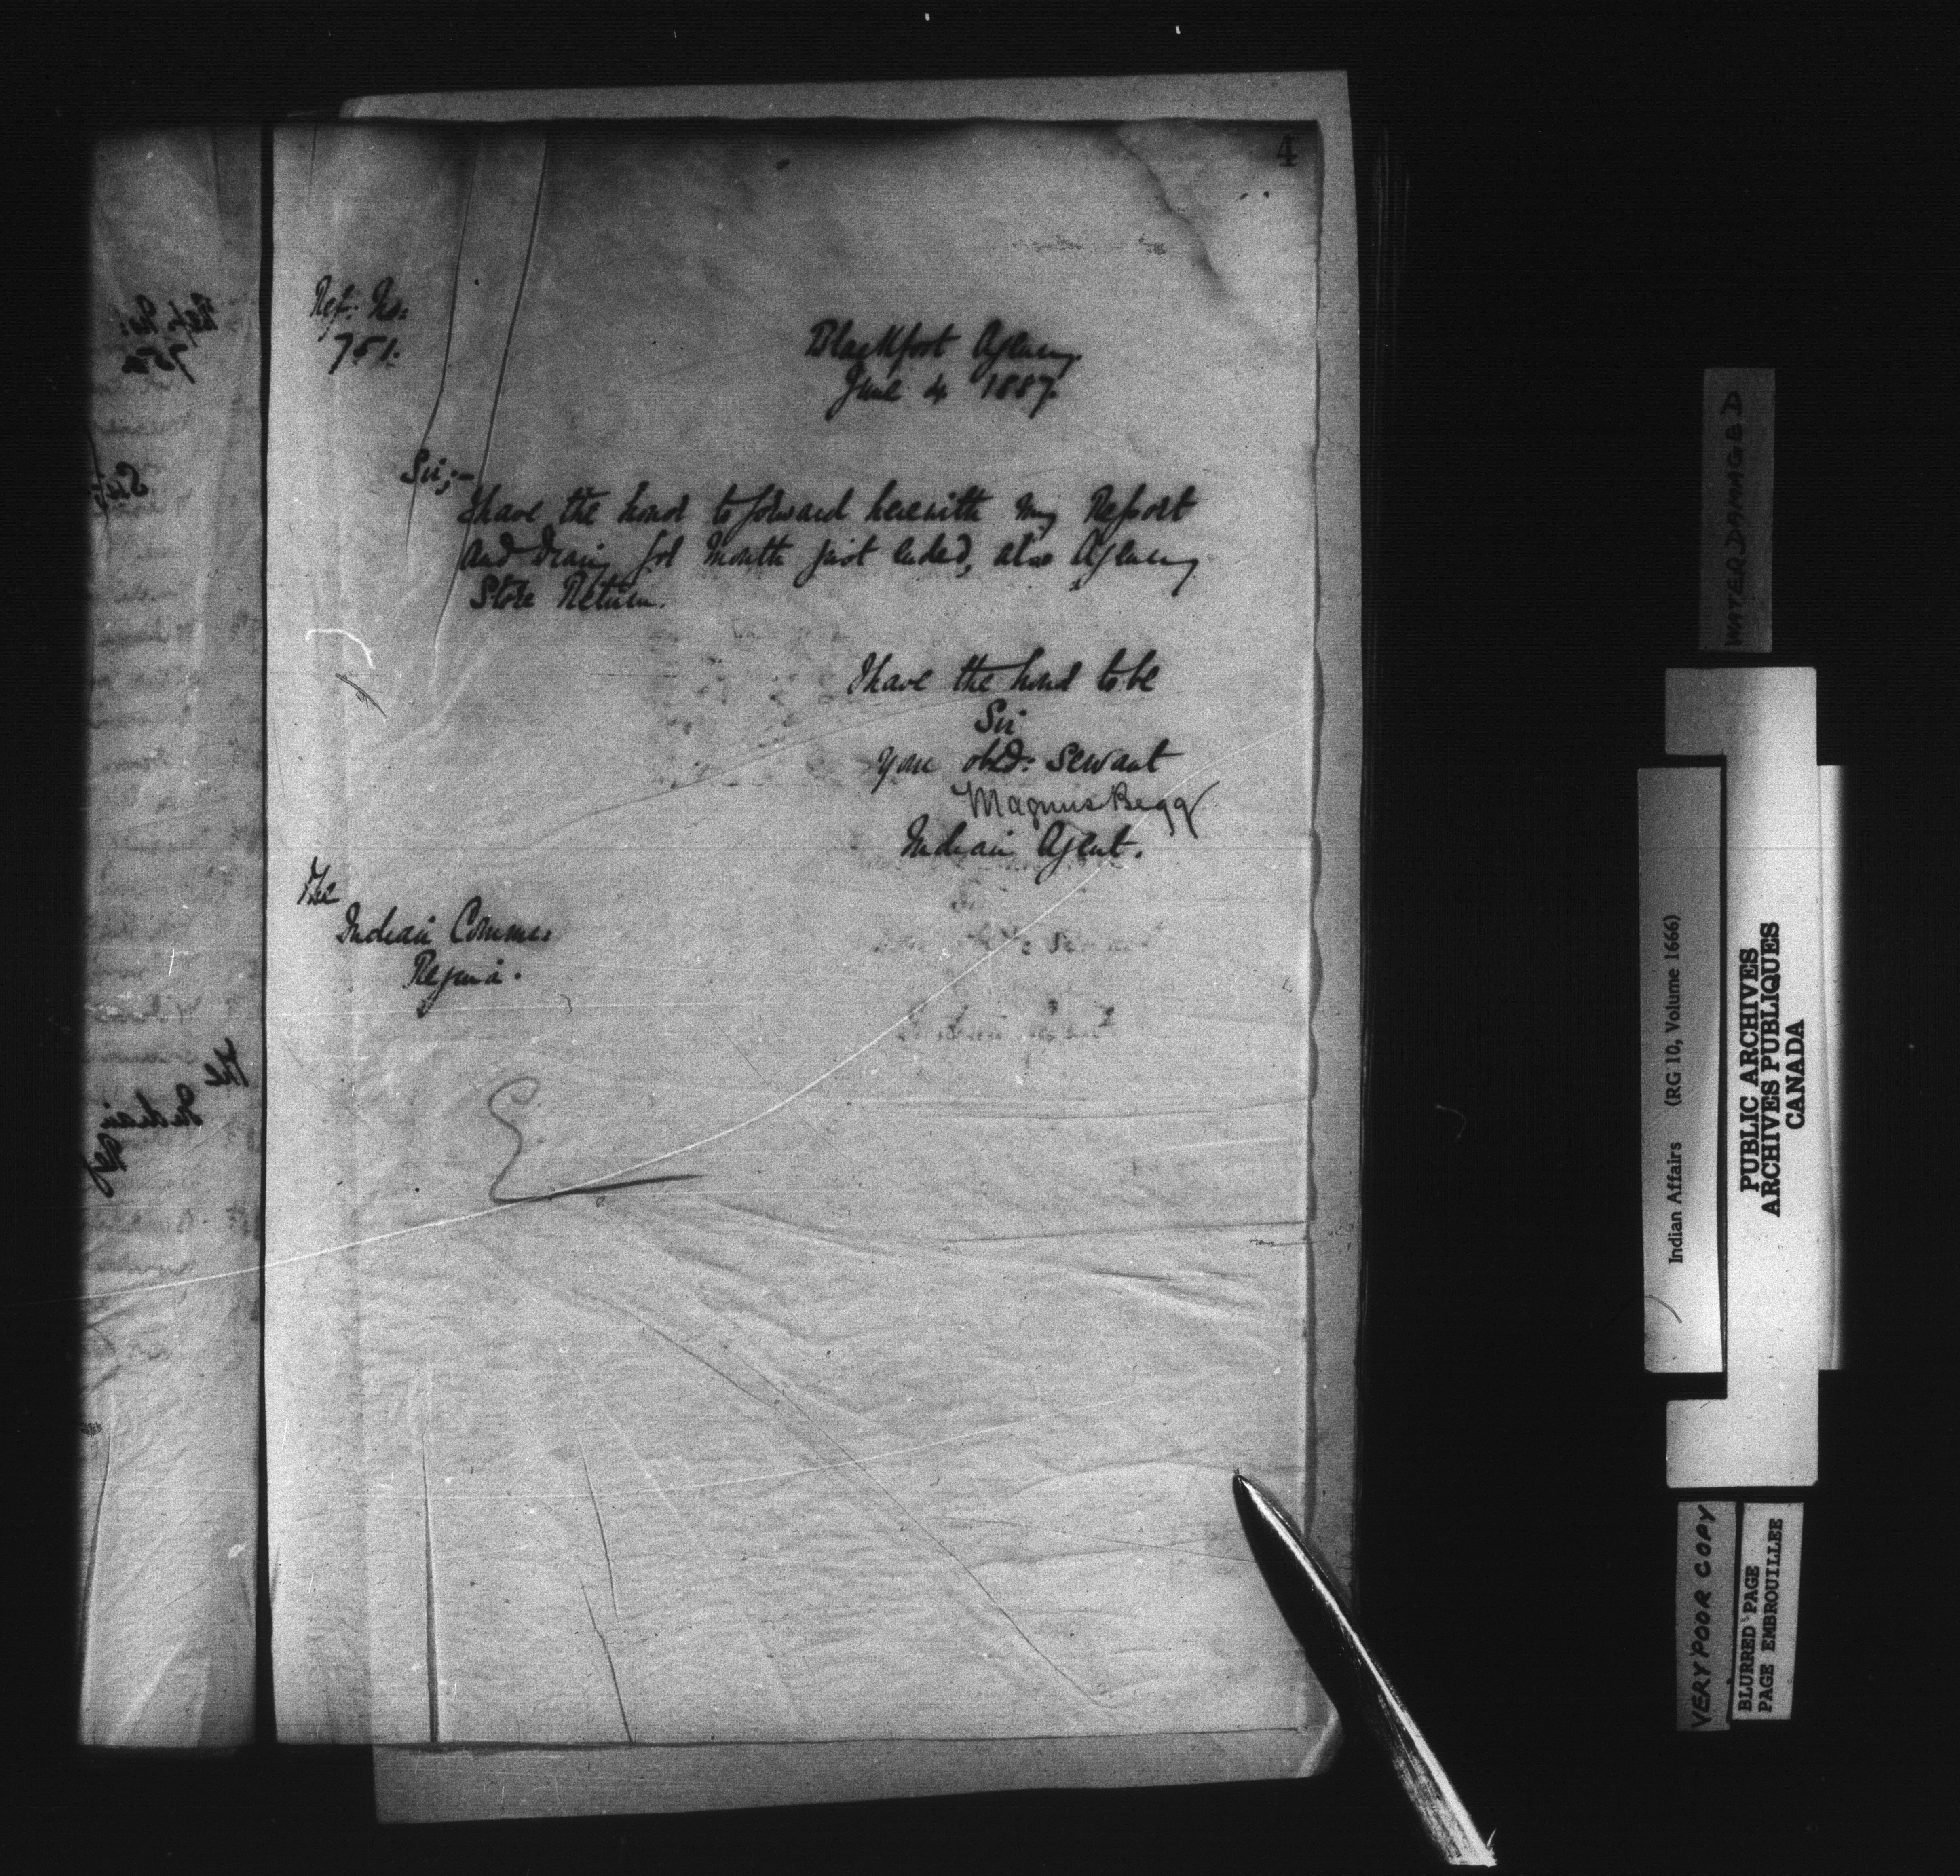 4
Ref: No:
751.
Blackfoot Agency.
June 4 1887.
Sir;-
I have the honor to forward herewith my Report
and Diary for Month just ended, also Agency
Store Return.
I have the honor to be
Sir
your obed: servant
Magnus Begg
Indian Agent.
The
Indian Commr.
Regina.
Ref. No:
752
Sir
The
Indian
Reg
WATERDAMAGED
Indian Affairs (RG 10, Volume 1666)
PUBLIC ARCHIVES
ARCHIVES PUBLIQUES
CANADA
VERY POOR COPY
BLURRED PAGE
PAGE EMBROUILLEE